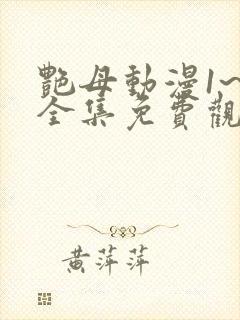 艷母動漫1~
全集免費觀
黃萍萍